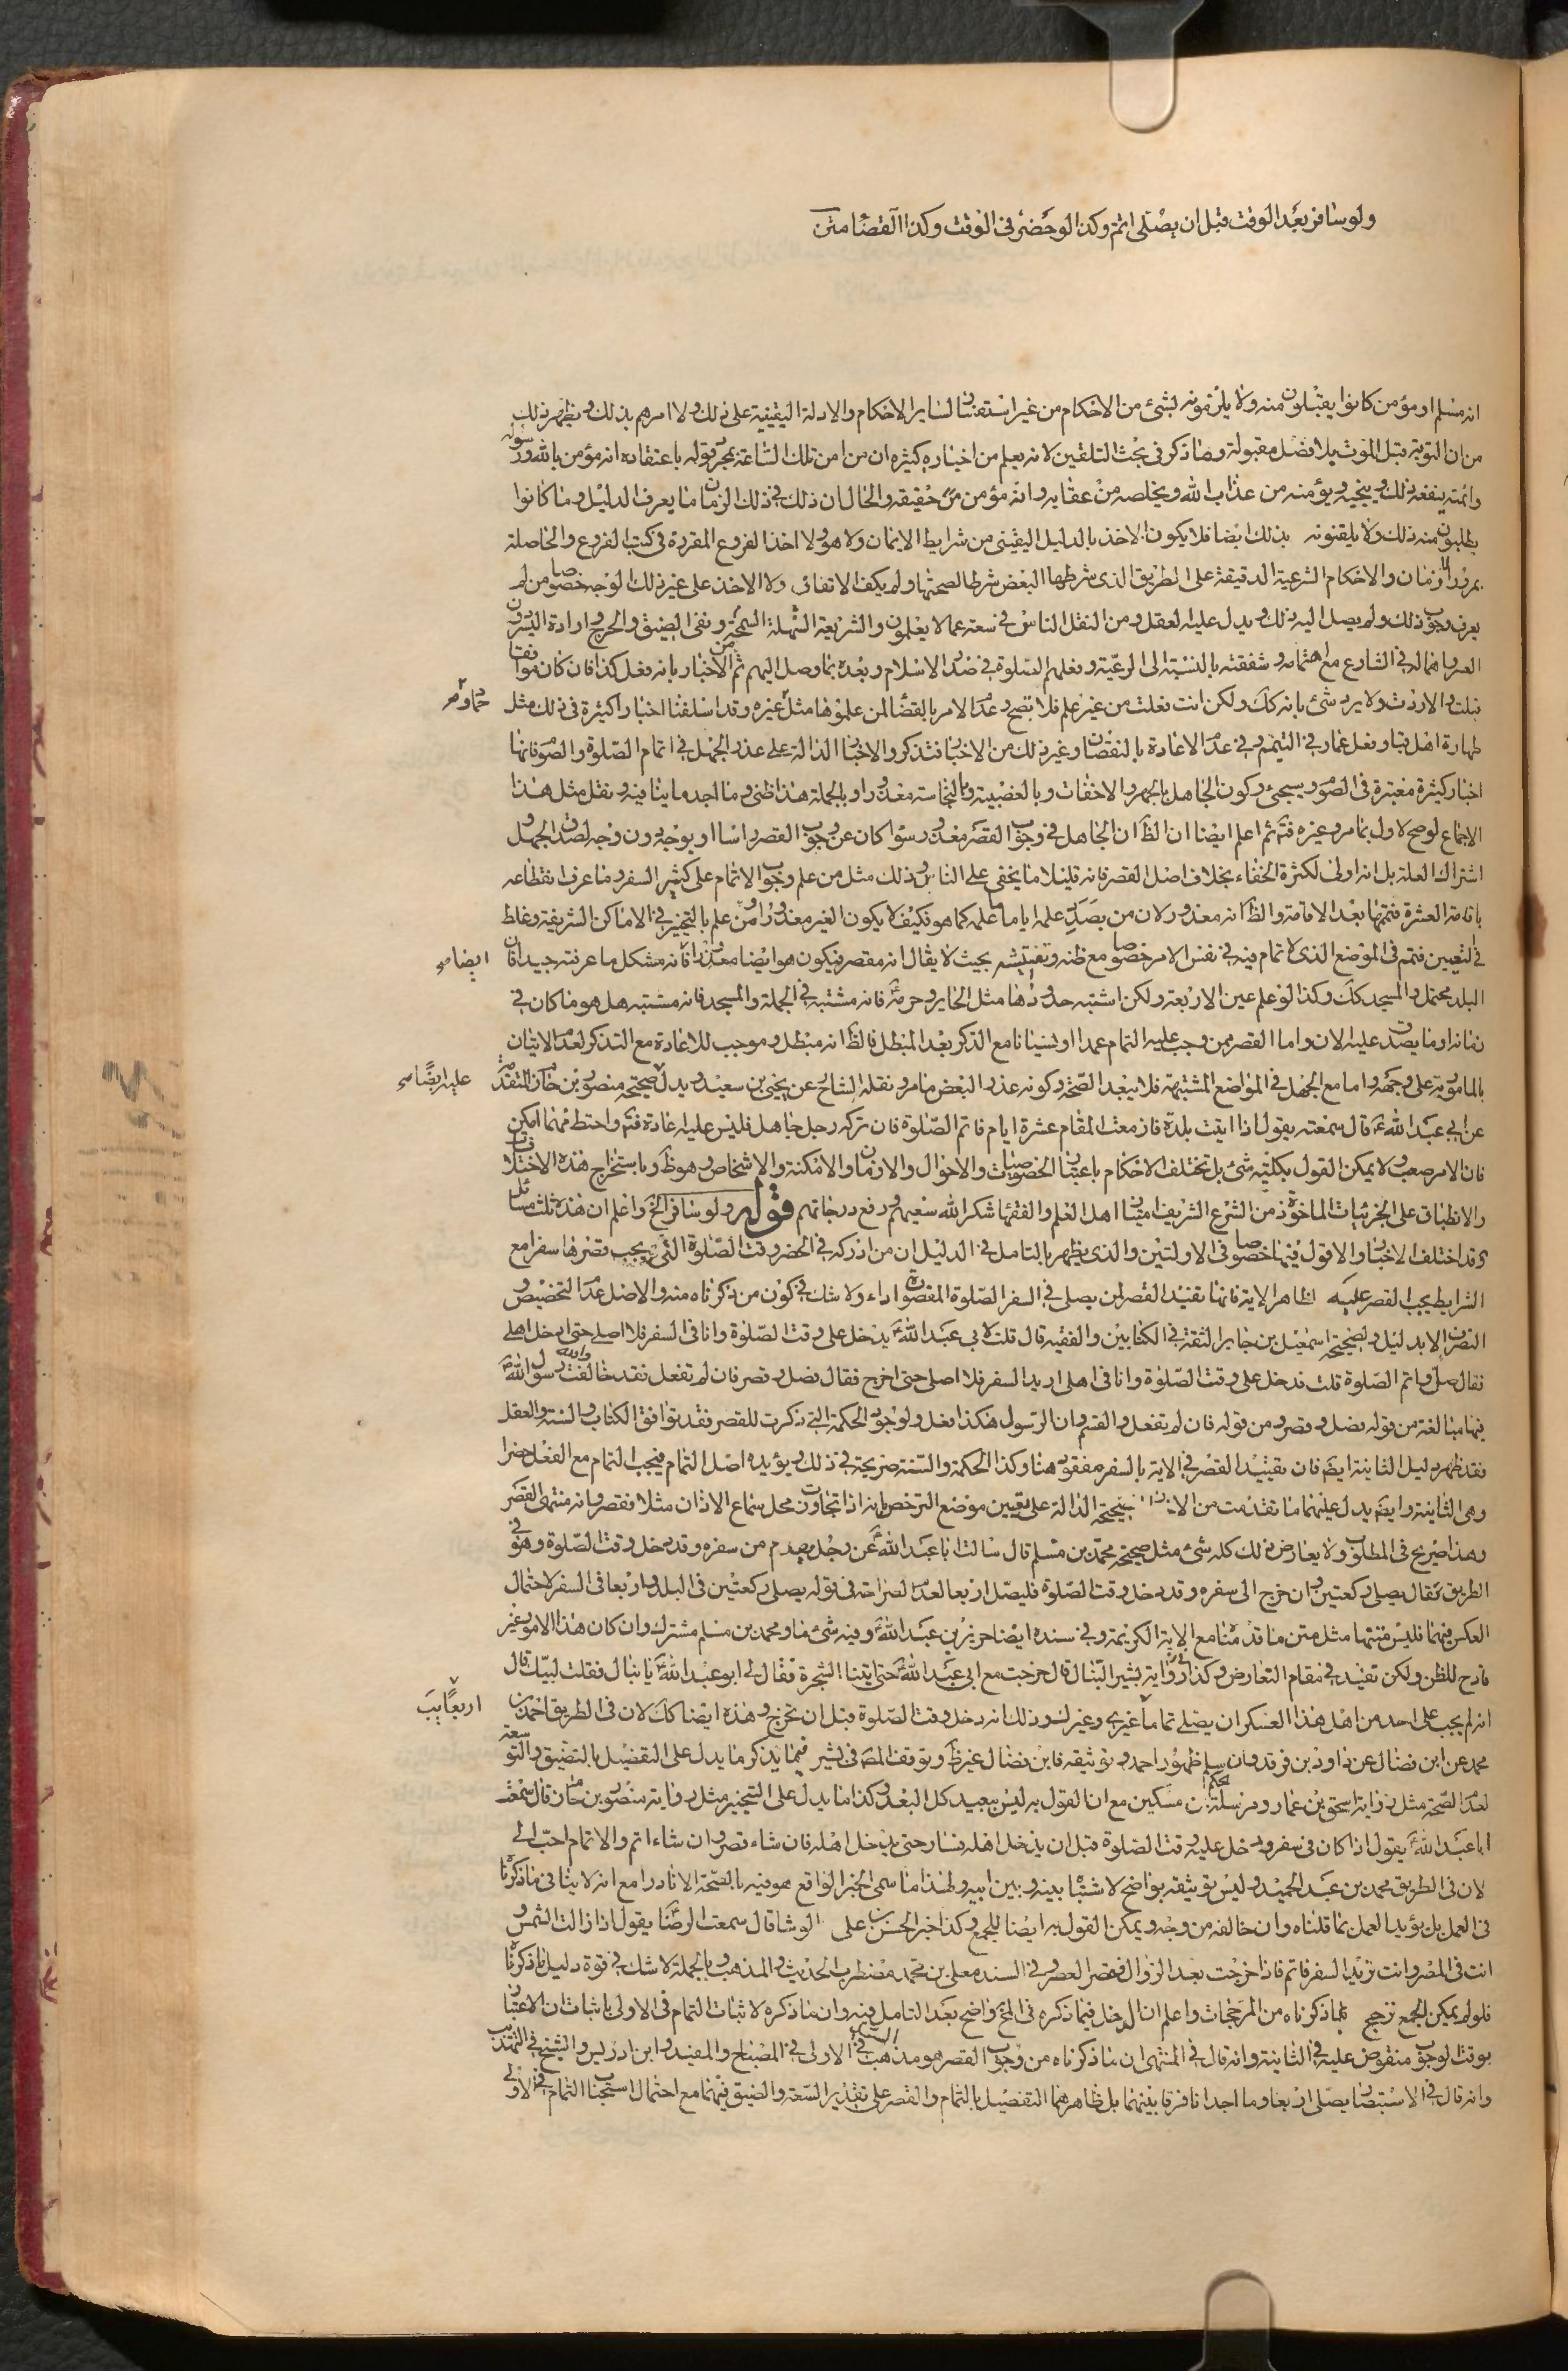 ولو سافر بعد الوقت قبل ان يصلى اتم وكذا لو حضر فى الوقت وكذا القضا متن
انه مسلم او مؤمن كانوا يقبلون منه ولا يلزمونه بشئ من الاحكام من غير استفسار لساير الاحكام والادلة اليقينية على ذلك ولا امرهم بذلك ويظهر ذلك
من ان التوبة قبل الموت بلا فصل مقبولة وما ذكر فى بحث التلقين لانه يعلم من اخبار كثيرة ان من امن تلك الساعة بمجرد قوله باعتقاده انه مؤمن بالله ورسوله
وائمته ينفعه ذلك وينجيه ويؤمنه من عذاب الله ويخلصه من عقابه وانه مؤمن حقيقة والحال ان ذلك فى ذلك الزمان ما يعرف الدليل وما كانوا
يطلبون منه ذلك ولا يلقنونه بذلك ايضا فلا يكون الاخذ بالدليل اليقينى من شرايط الايمان ولا هو ولا اخذ الفروع المقررة فى كتب الفروع والحاصلة
بمرور الازمان والاحكام الشرعية الدقيقة على الطريق الذى شرطها البعض شرطا لصحتها ولم يكف الاتفاقى ولا الاخذ على غير ذلك الوجه خصوصا من لم
يعرف وجوب ذلك ولم يصل اليه ذلك ويدل عليه العقل ومن النقل الناس فى سعة مما لا يعلمون والشريعة السهلة السمحة ونفى الضيق والحرج وارادة اليسر دون
العسر واهماله فى الشارع مع اهتمامه وشفقته بالنسبة الى الرعية وفعلهم الصلوة فى صدر الاسلام وبعده بما وصل اليهم ثم الاخبار بانه فعل كذا فان كان موافقا
قبلت والا ردت ولا يرد شئ بانه كك ولكن انت فعلت من غير علم فلا تصح وعدم الامر بالقضا لمن علموها مثل غيره وقد اسلفنا اخبارا كثيرة فى ذلك مثل
طهارة اهل قبا وفعل عمار فى التيمم وفى عدم الاعادة بالنقصان وغير ذلك من الاخبار فتذكر والاخبار الدالة على عذر الجهل فى اتمام الصلوة والصوم فانها
اخبار كثيرة معتبرة فى الصوم وسيجئ وكون الجاهل بالجهر والاخفات وبالغصبية وبالنجاسة معذورا وبالجملة هذا ظنى وما اجد ما ينافيه ونقل مثل هذا
الاجماع لو صح لاول بما مر وغيره فتم ثم اعلم ايضا ان الظ ان الجاهل فى وجوب القصر معذور سوا كان عن وجوب القصر راسا او بوجه دون وجه لصدق الجهل و
اشتراك العلة بل انه اولى لكثرة الخفاء بخلاف اصل القصر فانه قليلا ما يخفى على الناس وذلك مثل من علم وجوب الاتمام على كثير السفر وما عرف انقطاعه
باقامة العشرة فيتمها بعد الاقامة والظ انه معذور ولان من بصدد علمه اياما ما علمه كما هو فكيف لا يكون الغير معذورا ومن علم بالتخيير فى الاماكن الشريفة وغلط
فى التعيين فتمم فى الموضع الذى لا تمام فيه فى نفس الامر خصوصا مع ظنه وتفتيشه بحيث لا يقال انه مقصر فيكون هو ايضا معذورا فانه مشكل ما عرفته جيدا فان
البلد محتمل والمسجد كك وكذا لو علم عين الاربعة ولكن اشتبه حدودها مثل الحاير وحرمه فانه مشتبه فى الجملة والمسجد فانه مشتبه هل هو ما كان فى
زمانه او ما يصدق عليه الان واما القصر ممن وجب عليه التمام عمدا او نسيانا مع الذكر بعد المبطل فالظ انه مبطل وموجب للاعادة مع التذكر لعدم الاتيان
بالمامور به على وجهه واما مع الجهل فى المواضع المشتبهة فلا يبعد الصحة وكونه عذرا لبعض ما مر ونقله الشارح عن يحيى بن سعيد ويدل صحيحة منصور بن حازم المتقدمة
عن ابى عبد الله ع قال سمعته يقول اذا اتيت بلدة فازمعت المقام عشرة ايام فاتم الصلوة فان تركه رجل جاهل فليس عليه اعادة فتم واحتط مهما امكن
فان الامر صعب ولا يمكن القول بكلية شئ بل تختلف الاحكام باعتبار الخصوصيات والاحوال والازمان والامكنة والاشخاص وهو ظ وباستخراج هذه الاختلافات
والانطباق على الجزئيات الماخوذة من الشرع الشريف امتياز اهل العلم والفقها شكر الله سعيهم ورفع درجاتهم قوله ولو سافر الخ واعلم ان هذه ثلث مسائل
وقد اختلف الاخبار والاقول فيها خصوصا فى الاولتين والذى يظهر بالتامل فى الدليل ان من ادركه فى الحضر وقت الصلوة التى يجب قصرها سفرا مع
الشرايط يجب القصر عليه لظاهر الاية فانها تفيد القصر لمن يصلى فى السفر الصلوة المقصورة اداء ولا شك فى كون من ذكرناه منه والاصل عدم التخصيص و
التصرف الا بدليل ولصحيحة اسمعيل بن جابر الثقة فى الكتابين والفقيه قال قلت لابى عبد الله ع يدخل على وقت الصلوة وانا فى السفر فلا اصلى حتى ادخل اهلى
فقال صل واتم الصلوة قلت فدخل على وقت الصلوة وانا فى اهلى اريد السفر فلا اصلى حتى اخرج فقال فصل وقصر فان لم تفعل فقد خالفت والله رسول الله ص
فيها مبالغة من قوله فصل وقصر ومن قوله فان لم تفعل والقسم وان الرسول هكذا فعل ولوجود الحكمة التى ذكرت للقصر فقد توافق الكتاب والسنة والعقل
فقد ظهر دليل الثانية ايضا فان تقييد القصر فى الاية بالسفر مفقود هنا وكذا الحكمة والسنة صريحة فى ذلك ويؤيده اصل التمام فيجب التمام مع الفعل حضرا
وهى الثانية وايضا يدل عليهما ما تقدمت من الاخبار الصحيحة الدالة على تعيين موضع الترخص بانه اذا تجاوزت محل سماع الاذان مثلا فقصر وانه منتهى القصر
وهذا صريح فى المطلوب ولا يعارض ذلك كله شئ مثل صحيحة محمد بن مسلم قال سالت ابا عبد الله ع عن رجل يقدم من سفره وقد دخل وقت الصلوة وهو فى
الطريق فقال يصلى ركعتين وان خرج الى سفره وقد دخل وقت الصلوة فليصل اربعا لعدم الصراحة فى قوله يصلى ركعتين فى البلد واربعا فى السفر لاحتمال
العكس فيهما فليس متنها مثل متن ما قدمنا مع الاية الكريمة وفى سنده ايضا حريز بن عبد الله وفيه شئ ما ومحمد بن مسلم مشترك وان كان هذا الامور غير
قادح للظن ولكن تفيد فى مقام التعارض وكذا رواية بشير النبال قال خرجت مع ابى عبد الله ع حتى اتينا الشجرة فقال لى ابو عبد الله ع يا نبال فقلت لبيك قال
انه لم يجب على احد من اهل هذا العسكر ان يصلى تماما غيرى وغيرك وذلك انه دخل وقت الصلوة قبل ان نخرج وهذه ايضا كك لان فى الطريق احمد بن
محمد عن ابن فضال عن داود بن فرقد وان سلم ظهور احمد وتوثيقه فابن فضال غير ظ وتوقف المص فى بشير فيما يذكر ما يدل على التفصيل بالتضيق والتوسعة
لعدم الصحة مثل رواية اسحق بن عمار ومرسلة الحكم بن مسكين مع ان القول به ليس ببعيد كل البعد وكذا ما يدل على التخيير مثل رواية منصور بن حازم قال سمعت
ابا عبد الله ع يقول اذا كان فى سفر ودخل عليه وقت الصلوة قبل ان يدخل اهله فسار حتى يدخل اهله فان شاء قصر وان شاء اتم والاتمام احب الى
لان فى الطريق محمد بن عبد الحميد وليس توثيقه بواضح لاشتباه بينه وبين ابيه ولهذا ما سمى الخبر الواقع هو فيه بالصحة الا نادرا مع انه لا ينافى ما ذكرنا
فى العمل بل يؤيد العمل بما قلناه وان خالفه من وجه ويمكن القول به ايضا للجمع وكذا خبر الحسن بن على الوشا قال سمعت الرضا ع يقول اذا زالت الشمس و
انت فى المصر وانت تريد السفر فاتم فاذا خرجت بعد الزوال فقصر العصر وفى السند معلى بن محمد مضطرب الحديث والمذهب وبالجملة لا شك فى قوة دليل ما ذكرنا
فلو لم يمكن الجمع ترجح بما ذكرناه من المرجحات واعلم ان الدخل فيما ذكره فى المخ واضح بعد التامل فيه وان ما ذكره لاثبات التمام فى الاولى باثبات ان الاعتبار
بوقت لوجوب منقوض عليه فى الثانية وانه قال فى المنتهى ان ما ذكرناه من وجوب القصر هو مذهب السيد فى الاولى فى المصباح والمفيد وابن ادريس والشيخ فى التهذيب
وانه قال فى الاستبصار يصلى اربعا وما اجد انا فرقا بينهما بل ظاهرهما التفصيل بالتمام والقصر على تقدير السعة والضيق فيهما مع احتمال استحبنا التمام فى الاولى
ايضا صح
عليه ايضا صح